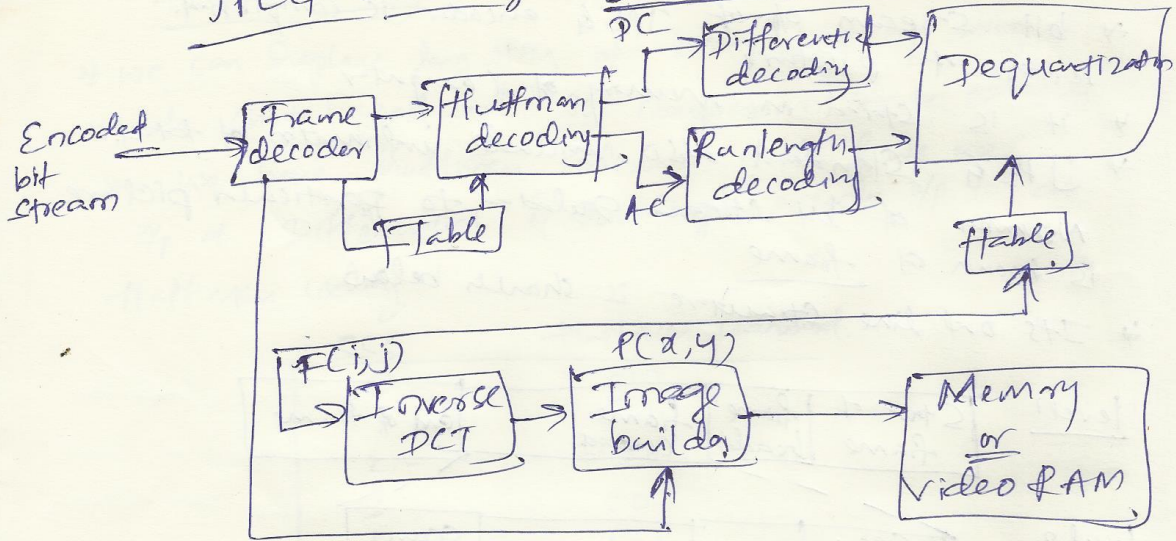 JPEG
Encoded
bit
stream
Frame
decoder
Huffman
decoding
DC
AC
Differential
decoding
Runlength
decoding
Dequantizatn
Table
Table
F(i,j)
Inverse
DCT
P(x,y)
Image
builder
Memry
or
Video RAM